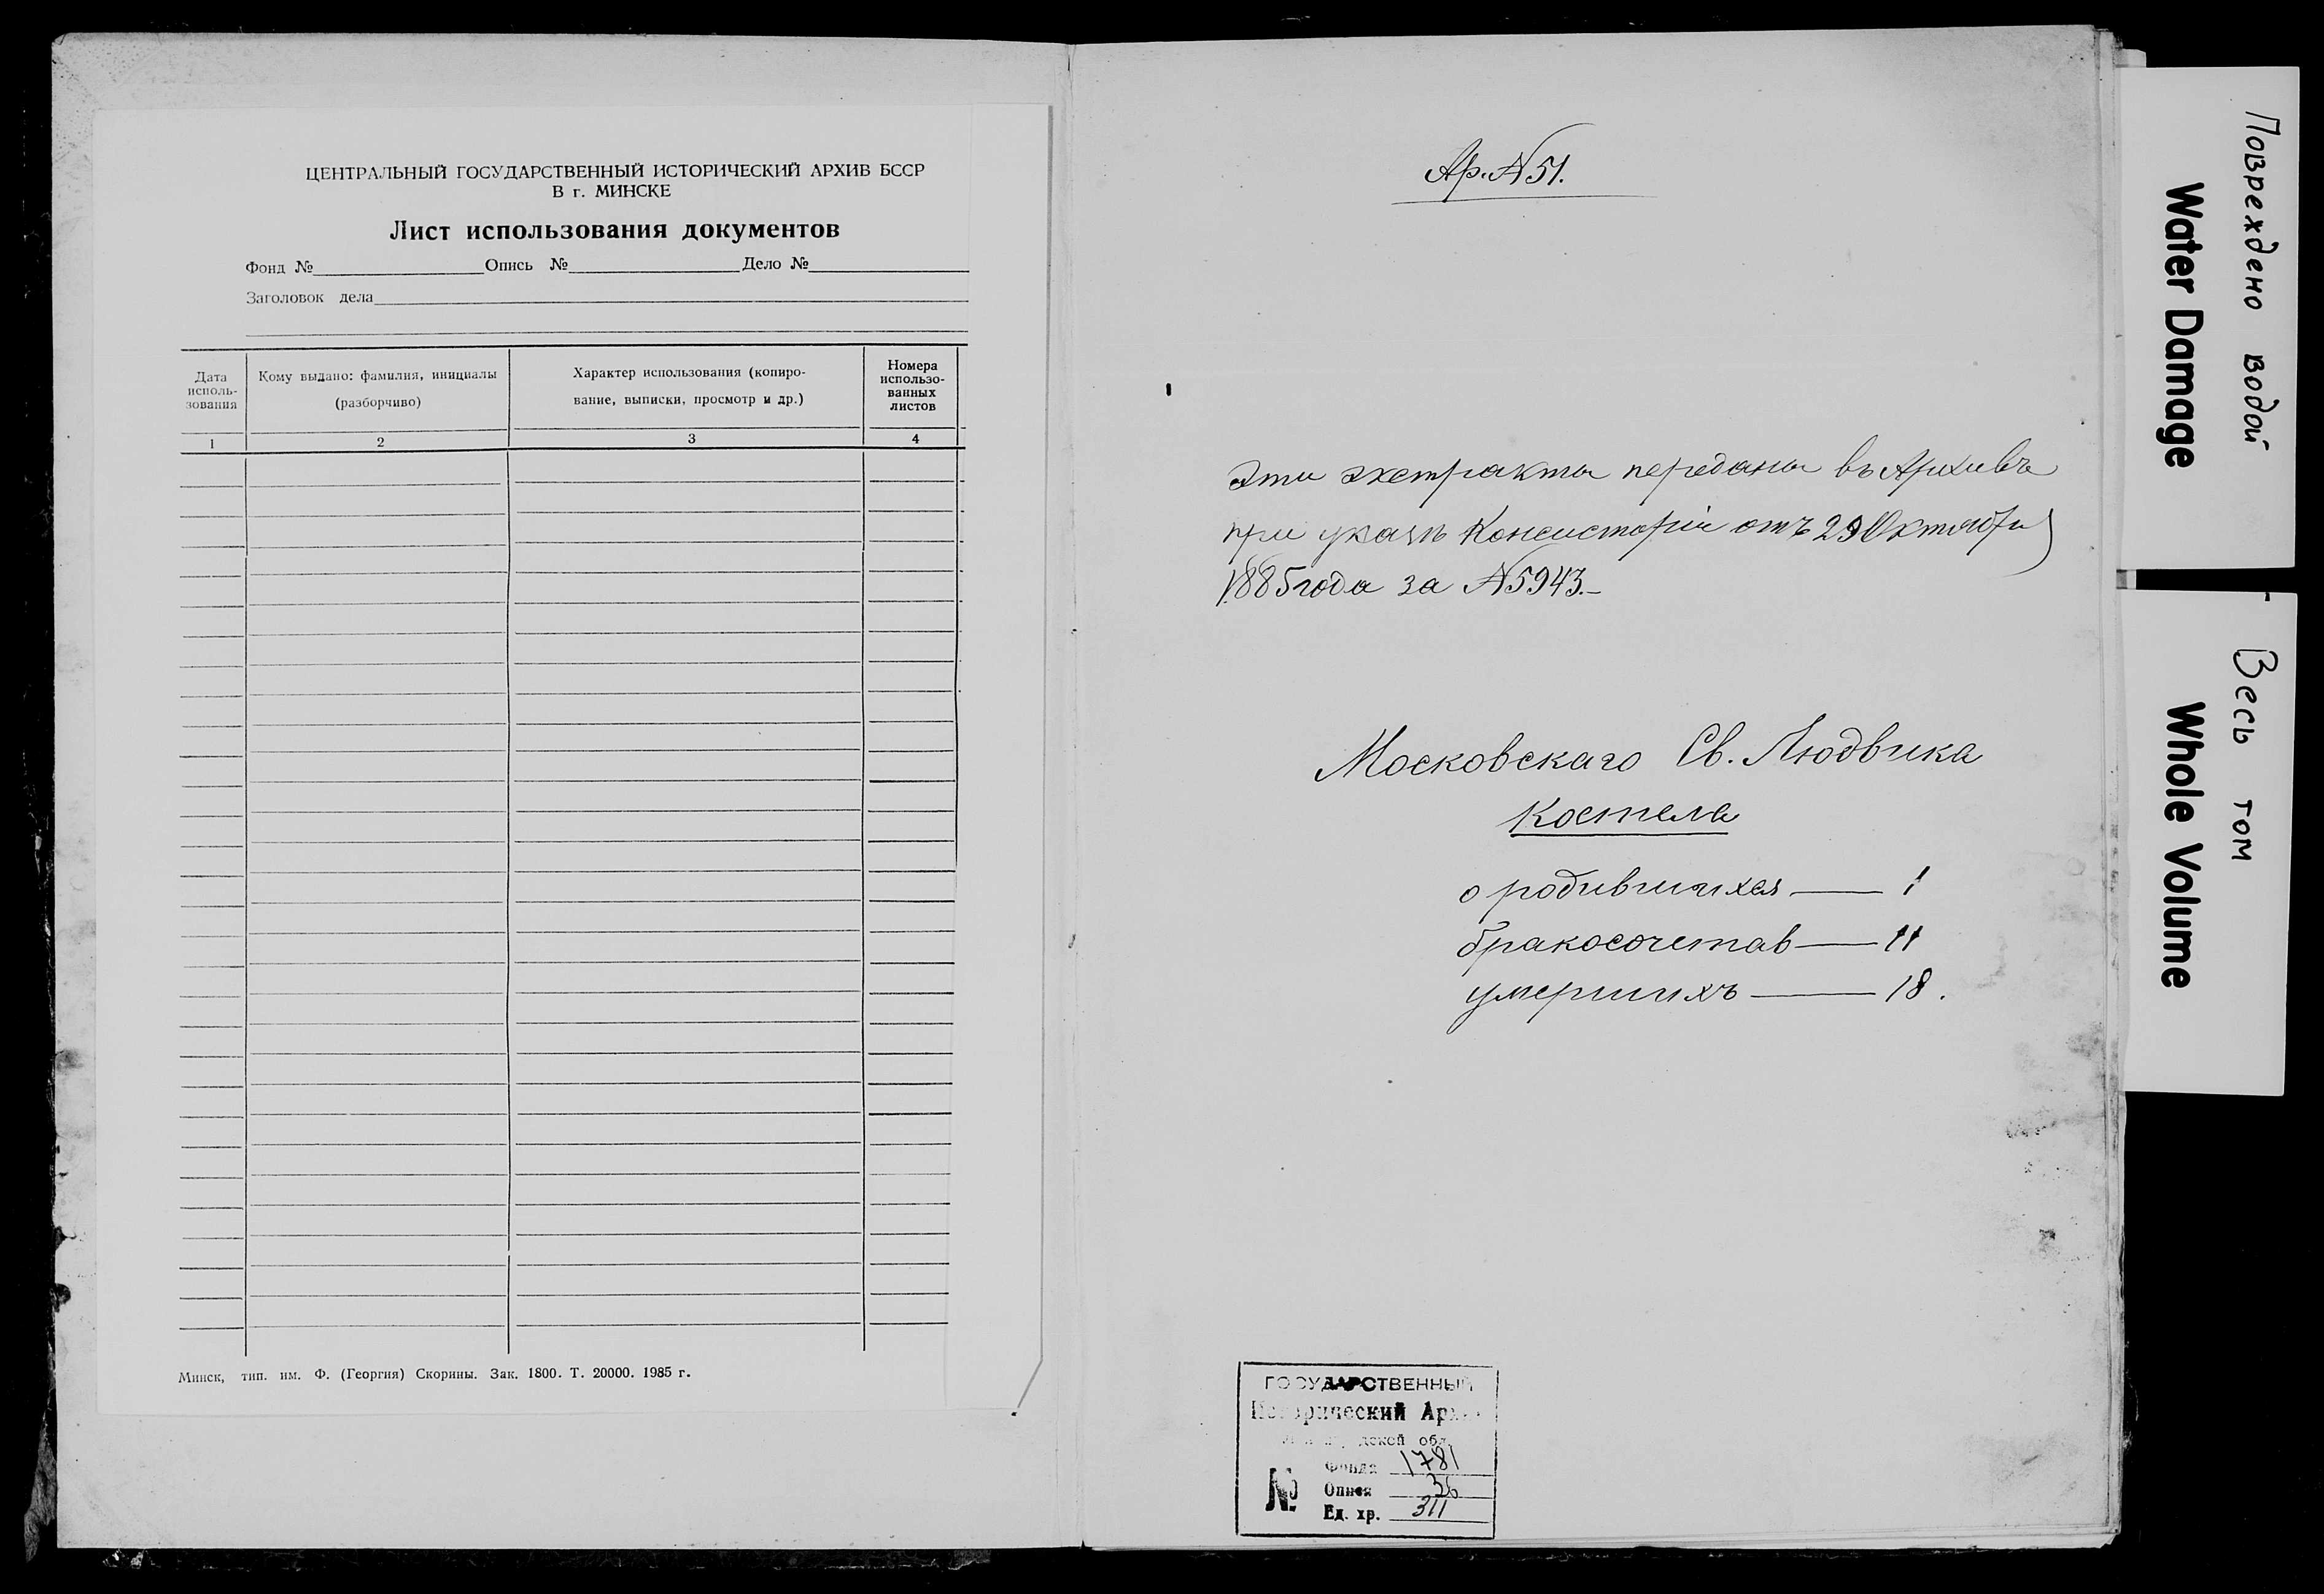 ЦЕНТРАЛЬНЫЙ ГОСУДАРСТВЕННЫЙ ИСТОРИЧЕСКИЙ АРХИВ БССР
В г. МИНСКЕ
Лист использования документов
Фонд № Опись № Дело №
Заголовок дела
Дата исполь-зования
Кому выдано: фамилия, инициалы (разборчиво)
Характер использования (копиро-вание, выписки, просмотр и др.)
Номера использо-ванных листов
1 2 3 4
Минск, тип. им. Ф. (Георгия) Скорины. Зак. 1800. Т. 20000. 1985 г.
Ар. N 51.
Эти экстракты переданы въ Архивъ
при указѣ Консисторіи отъ 29 Октября
1885 года за N 5943.
Московскаго Св. Людвика
Костела
о родившихся — 1
бракосочетав — 11
умершихъ — 18.
ГОСУДАРСТВЕННЫЙ
Исторический Архив
обл.
№
Фонда 1781
Описи 36
Ед. хр. 311
Повреждено водой
Water Damage
Весь том
Whole Volume